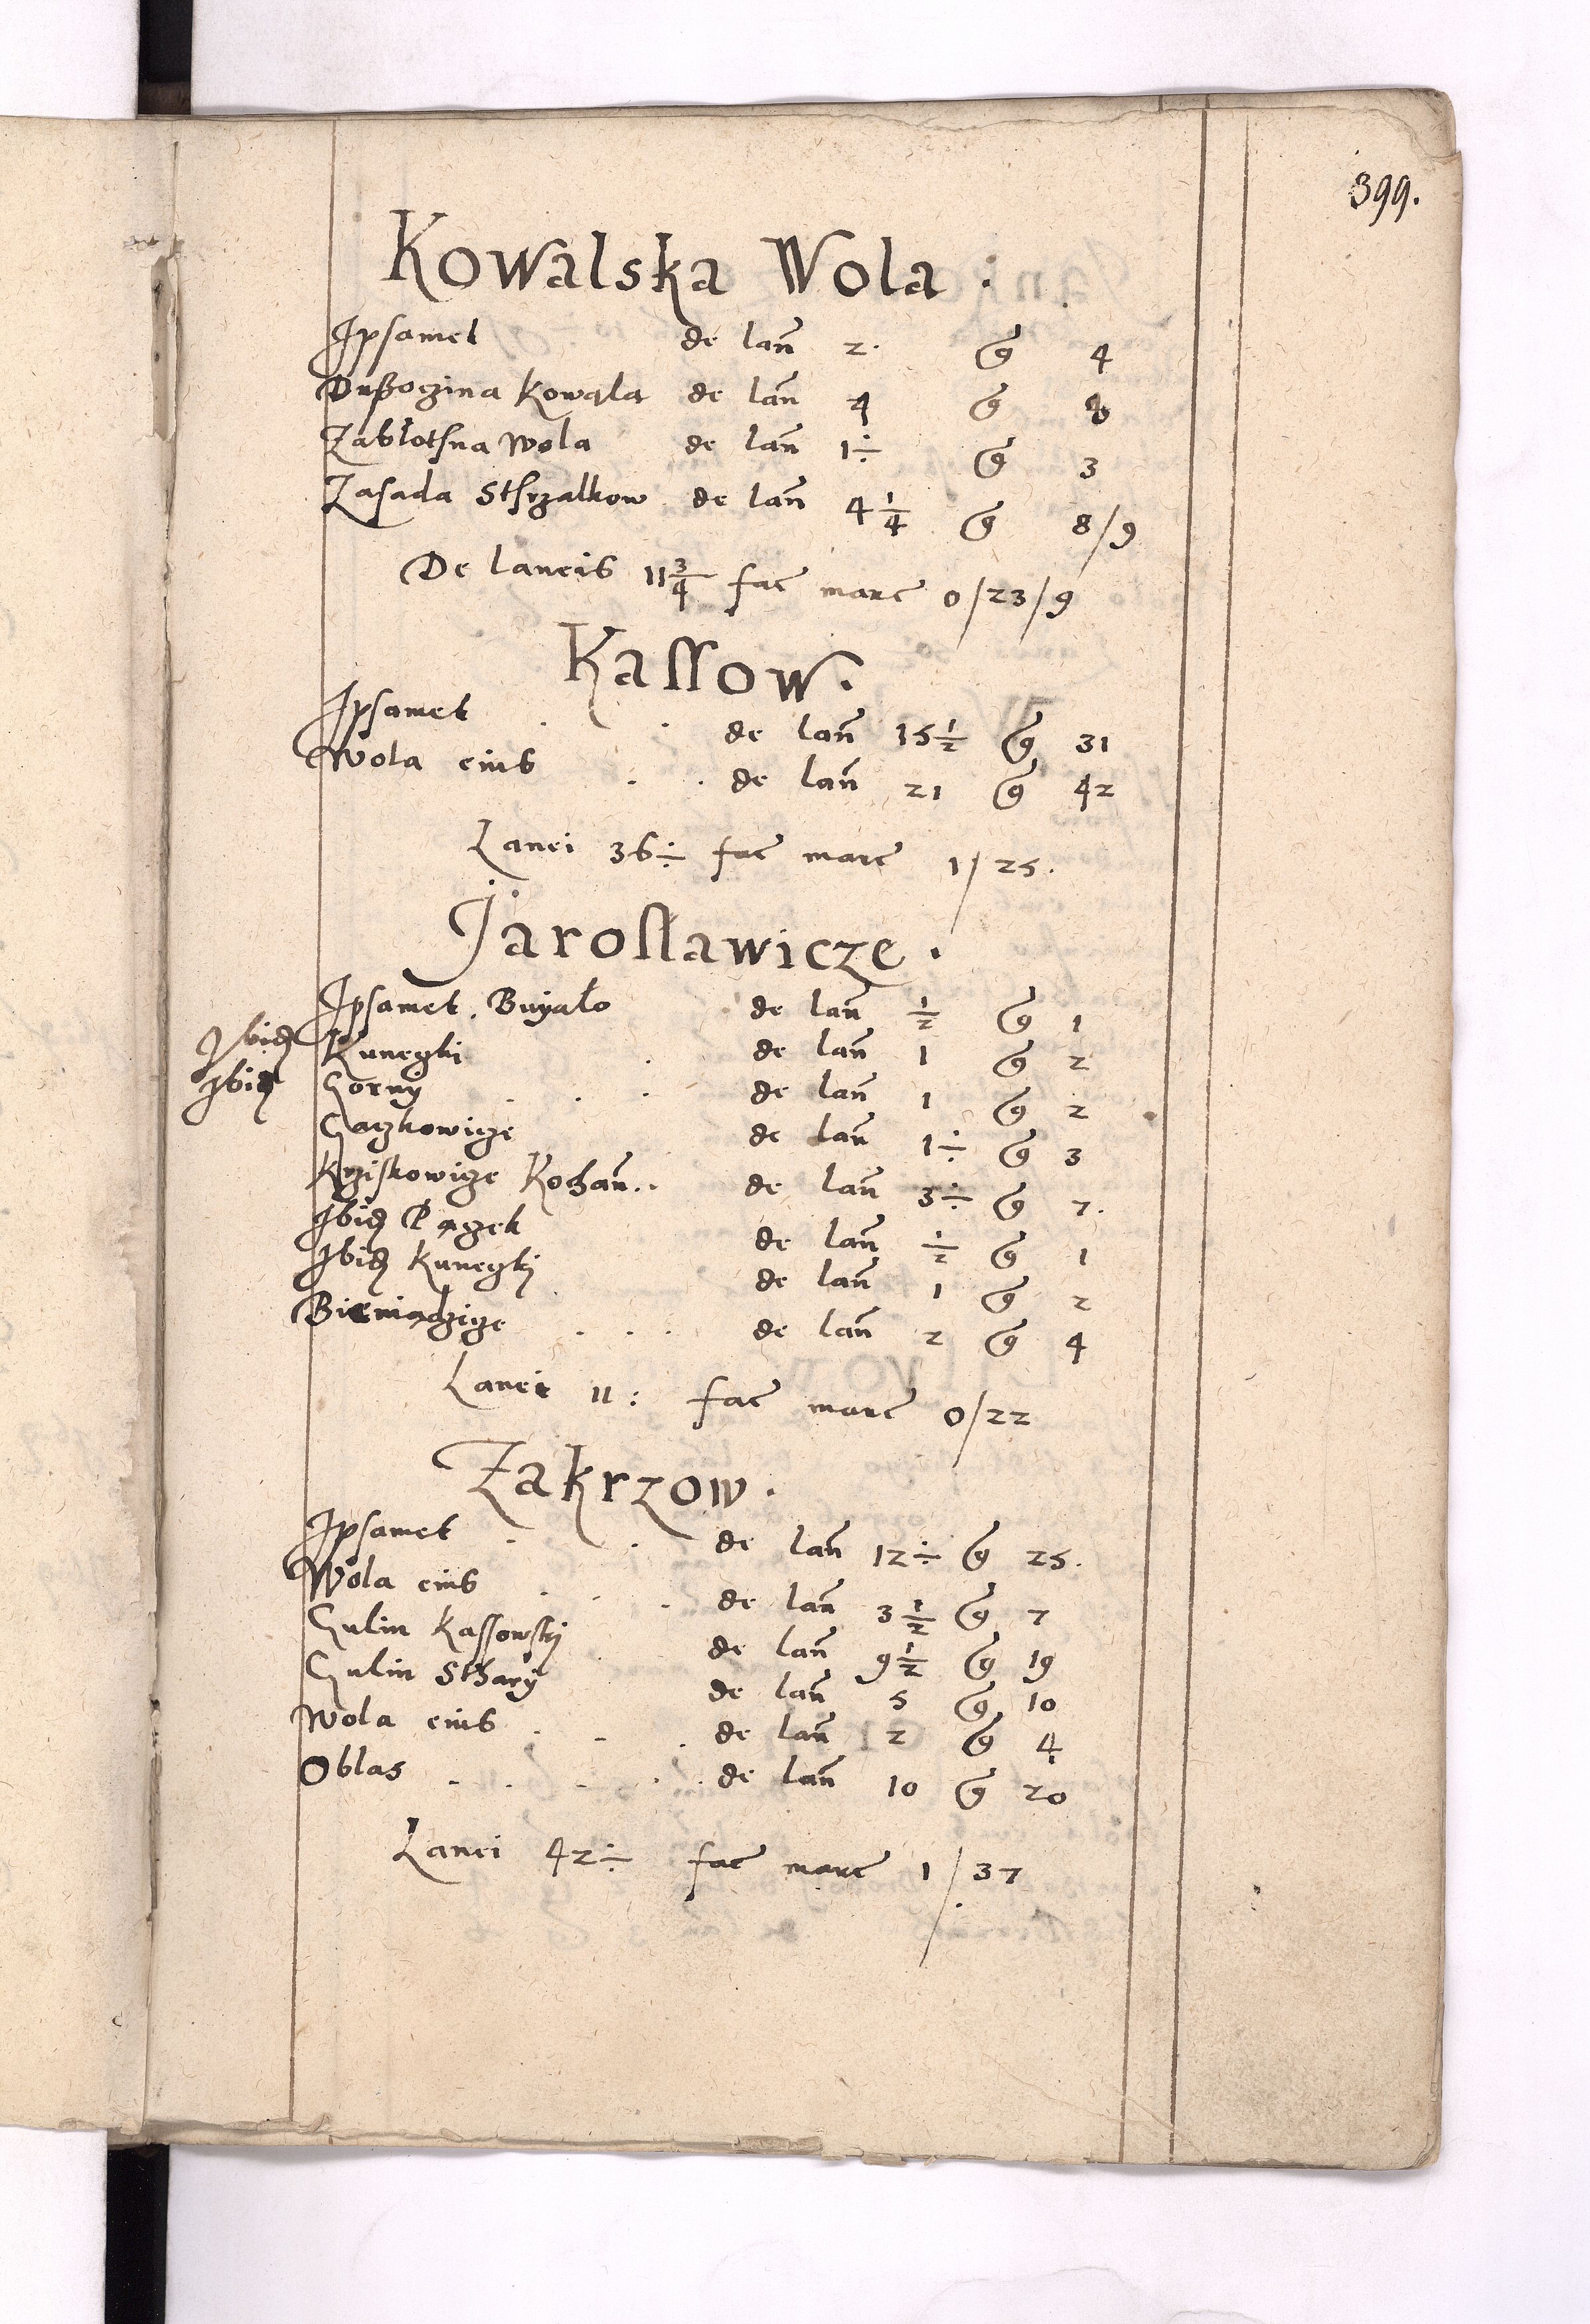 399.
Kowalska Wola .
Ipsamet de lan̄ 2. g 4
Dußoczina Kowala de lan̄ 4 g 8
Zabłotsna Wola de lan̄ 1÷ g 3
Zasada Sthrzalkow de lan̄ 4 1/4 g 8/9
De laneis 11 3/4 fac marc 0/23/9
Kassow.
Ipsamet . . de lan̄ 15 1/2 g 31
Wola eius . . de lan̄ 21 g 42
Lanei 36÷ fac marc 1/25.
Jaroslawicze .
Ipsamet . Buyało de lan̄ 1/2 g 1
Ibid Kuneczki . de lan̄ 1 g 2
Ibid Gorny . . . de lan̄ 1 g 2
Gaczkowicze de lan̄ 1÷ g 3
Krziskowicze Kochan̄.. de lan̄ 3÷ g 7.
Ibid Pączek de lan̄ 1/2 g 1
Ibid Kuneczkj de lan̄ 1 g 2
Bieniadzicze . . . de lan̄ 2 g 4
Lanei 11: fac marc 0/22
Zakrzow .
Ipsamet . . de lan̄ 12÷ g 25.
Wola eius . . . de lan̄ 3 1/2 g 7
Gulin Kassowskj de lan̄ 9 1/2 g 19
Gulin Sthary de lan̄ 5 g 10
Wola eius . . . de lan̄ 2 g 4
Oblas . . . . . de lan̄ 10 g 20
Lanei 42÷ fac marc 1/37